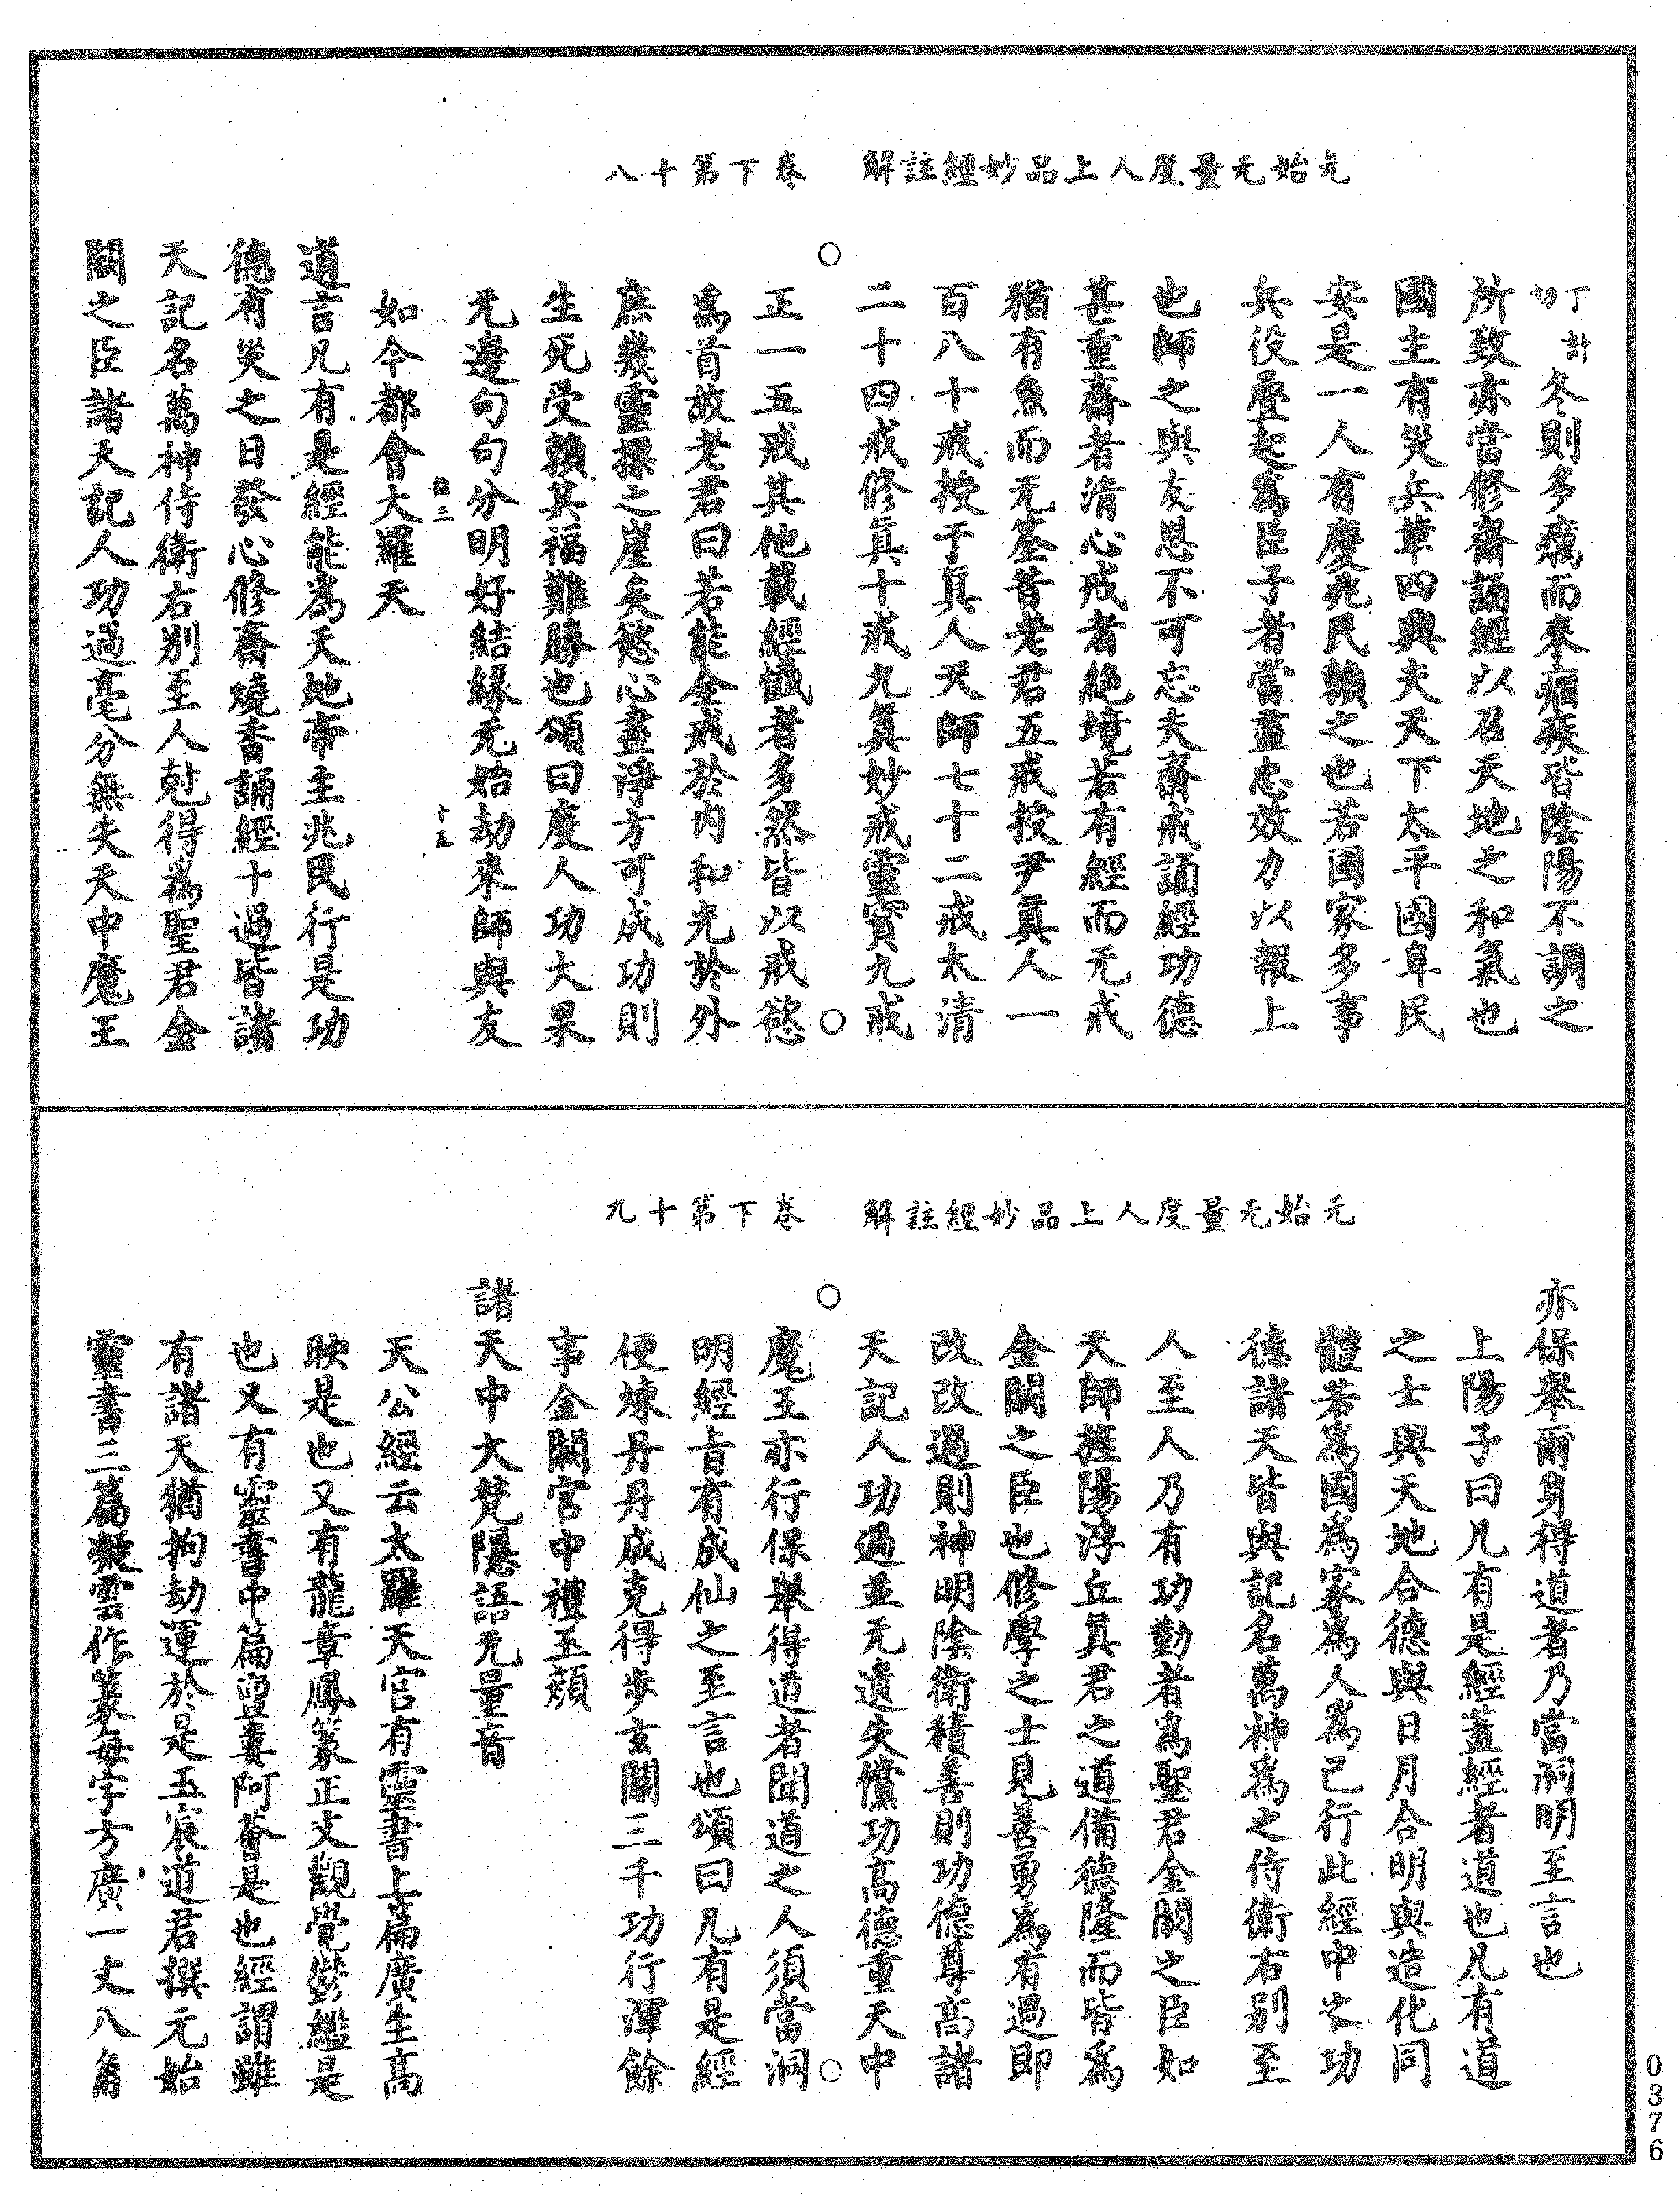 元始无量度人上品妙經註解　卷下第十八
丁計切冬則多癘而來痼疾皆陰陽不調之
所致亦當修齋誦經以召天地之和氣也
國主有災兵革四興夫天下太平國阜民
安是一人有慶兆民賴之也若國家多事
兵役疊起為臣子者當盡忠效力以報上
也師之與友恩不可忘夫齋戒誦經功德
甚重齋者清心戒者絶境若有經而无戒
猶有魚而无筌昔老君五戒授尹真人一
百八十戒授于真人天師七十二戒太清
二十四戒修真十戒九真妙戒靈寶九戒
正一五戒其他載經懴者多然皆以戒慾
為首故老君曰若能全戒於內和光於外
庶幾靈操之崖矣慾心盡淨方可成功則
生死受賴其福難勝也頌曰度人功大果
无邊句句分明好結縁元始劫來師與友
如今都會大羅天
三
十五
道言凡有是經能為天地帝主兆民行是功
德有災之日發心修齋燒香誦經十過皆諸
天記名萬神侍衛右別至人尅得為聖君金
闕之臣諸天記人功過毫分無失天中魔王
元始无量度人上品妙經註解　卷下第十九
亦保舉爾身得道者乃當洞明至言也
上陽子曰凡有是經蓋經者道也凡有道
之士與天地合德與日月合明與造化同
體若為國為家為人為己行此經中之功
德諸天皆與記名萬神為之侍衛右別至
人至人乃有功勤者為聖君金闕之臣如
天師捱陽浮丘真君之道備德隆而皆為
金闕之臣也修學之士見善勇為有過即
改改過則神明陰衛積善則功德尊高諸
天記人功過並无遺失儻功高德重天中
魔王亦行保舉得道者聞道之人須當洞
明經旨有成仙之至言也頌曰凡有是經
便煉丹丹成克得步玄關三千功行渾餘
事金闕宮中禮玉顏
諸天中大梵隱語无量音
天公經云太羅天宮有靈書上篇廣生高
映是也又有龍章鳳篆正文觀覺欝繼是
也又有靈書中篇亶婁阿薈是也經謂雖
有諸天猶拘劫運於是玉宸道君撰元始
靈書三篇凝雲作篆每字方廣一丈八角
0376